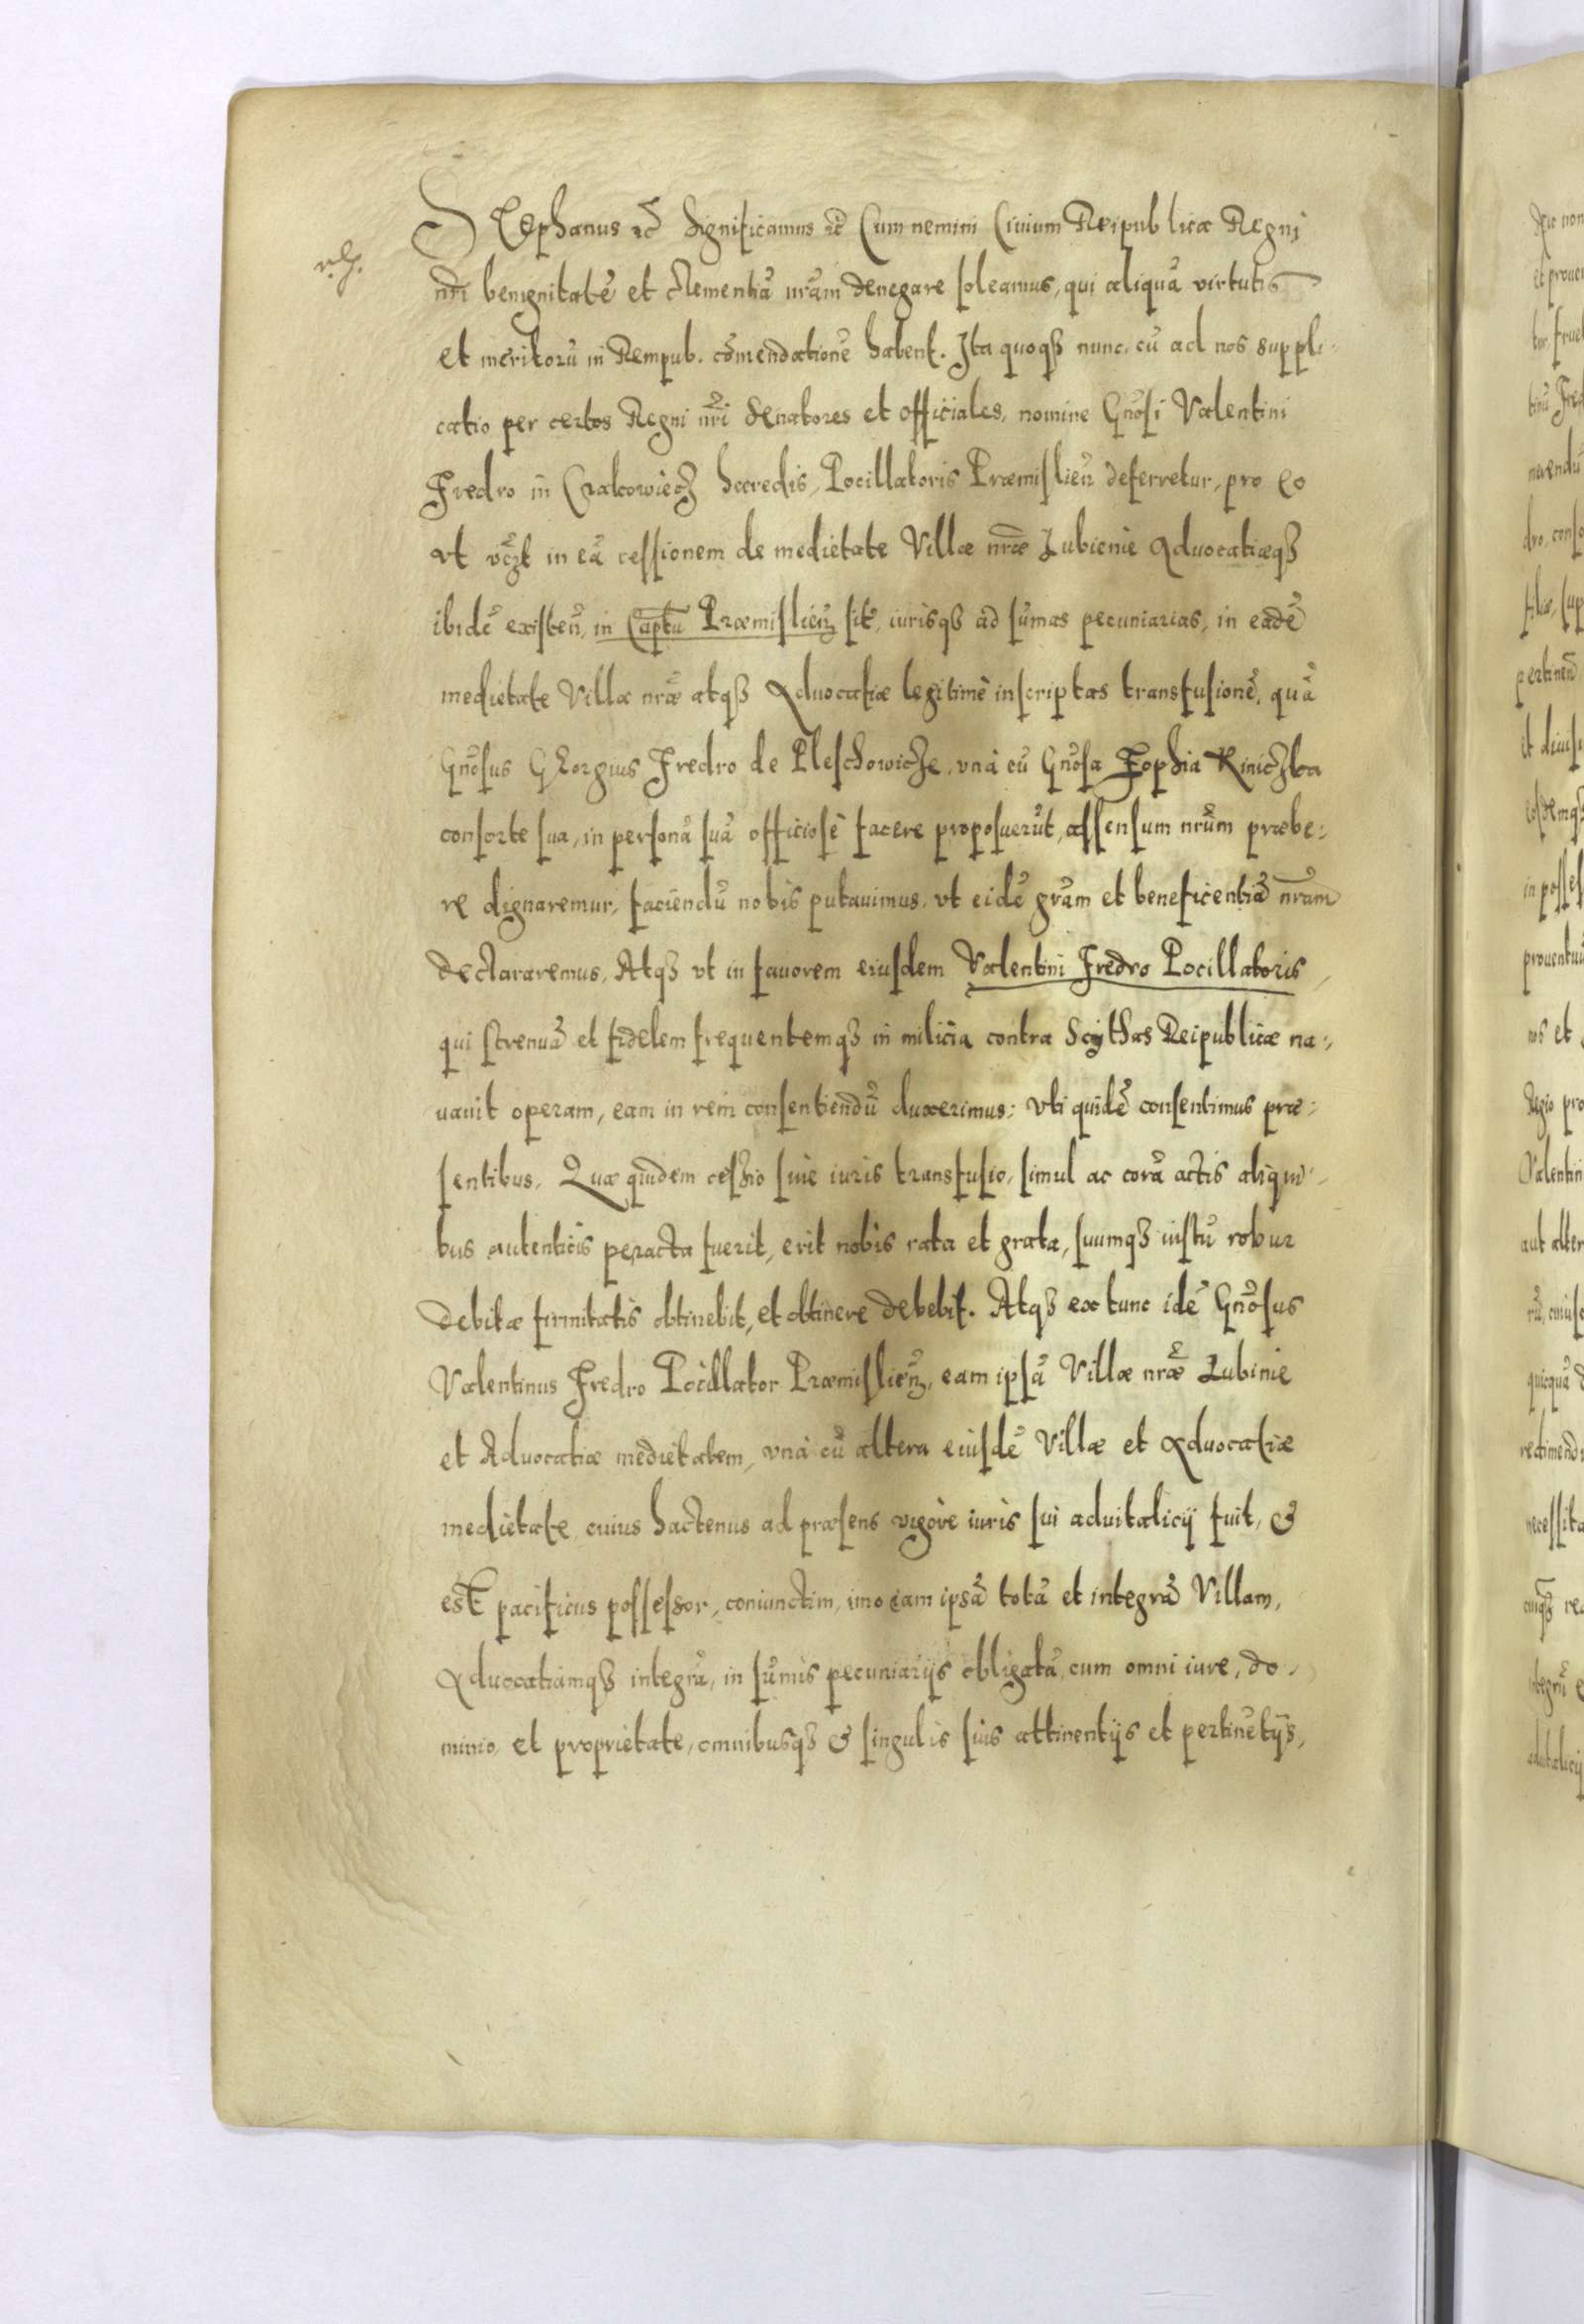 Stephanus etc̃ Significamus etc̃ Cum nemini Civium Reipublicæ Regni
nr̃i benignitatẽ et clementiã nr̃am denegare soleamus, qui aliquã virtutis
et meritorũ in Rempub. cõmendationẽ habent. Ita quoqꝫ nunc, cũ ad nos suppli-
catio per certos Regni nr̃i Senatores et officiales, nomine Gñosi Valentini
Fredro in Czalcowiecz hæredis, Pocillatoris Præmislieñ deferretur, pro eo
vt in eã cessionem de medietate Villæ nr̃æ Lubienie Aduocatiæqꝫ
ibidẽ existeñ, in Captu Præmislieñ sit̃, iurisqꝫ ad sum̃as pecuniarias, in eadẽ
medietate Villæ nr̃æ atqꝫ Aduocatiæ legitimè inscriptas transfusionẽ, quã
Gñosus Georgius Fredro de Pleschowicze, vnà cũ Gñosa Zophia Riniczka
consorte sua, in personã suã officiosè facere proposuerũt, assensum nr̃um præbe-
re dignaremur, faciendũ nobis putauimus, vt eidẽ gr̃am et beneficentiã nr̃am
declararemus, Atqꝫ vt in fauorem eiusdem Valentini Fredro Pocillatoris,
qui strenuã et fidelem frequentemqꝫ in milicia contra Scythas Reipublicæ na-
uauit operam, eam in rem consentiendũ duxerimus: vti quidẽ consentimus præ-
sentibus. Quæ quidem cessio siue iuris transfusio, simul ac corã actis aliqui-
bus autenticis peracta fuerit, erit nobis rata et grata, suumqꝫ iustũ robur
debitæ firmitatis obtinebit, et obtinere debebit. Atqꝫ ex tunc idẽ Gñosus
Valentinus Fredro Pocillator Præmislieñ, eam ipsã Villæ nr̃æ Lubinie
et Aduocatiæ medietatem, vnà cũ altera eiusdẽ Villæ et Aduocatiæ
medietate, cuius hactenus ad præsens vigore iuris sui aduitalicij fuit, &
est pacificus possessor, coniunctim, imo eam ipsã totã et integrã Villam,
Aduocatiamqꝫ integrã, in sum̃is pecuniarijs obligatã, cum omni iure, do-
minio, et proprietate, omnibusqꝫ & singulis suis attinentijs et pertinẽtijs,